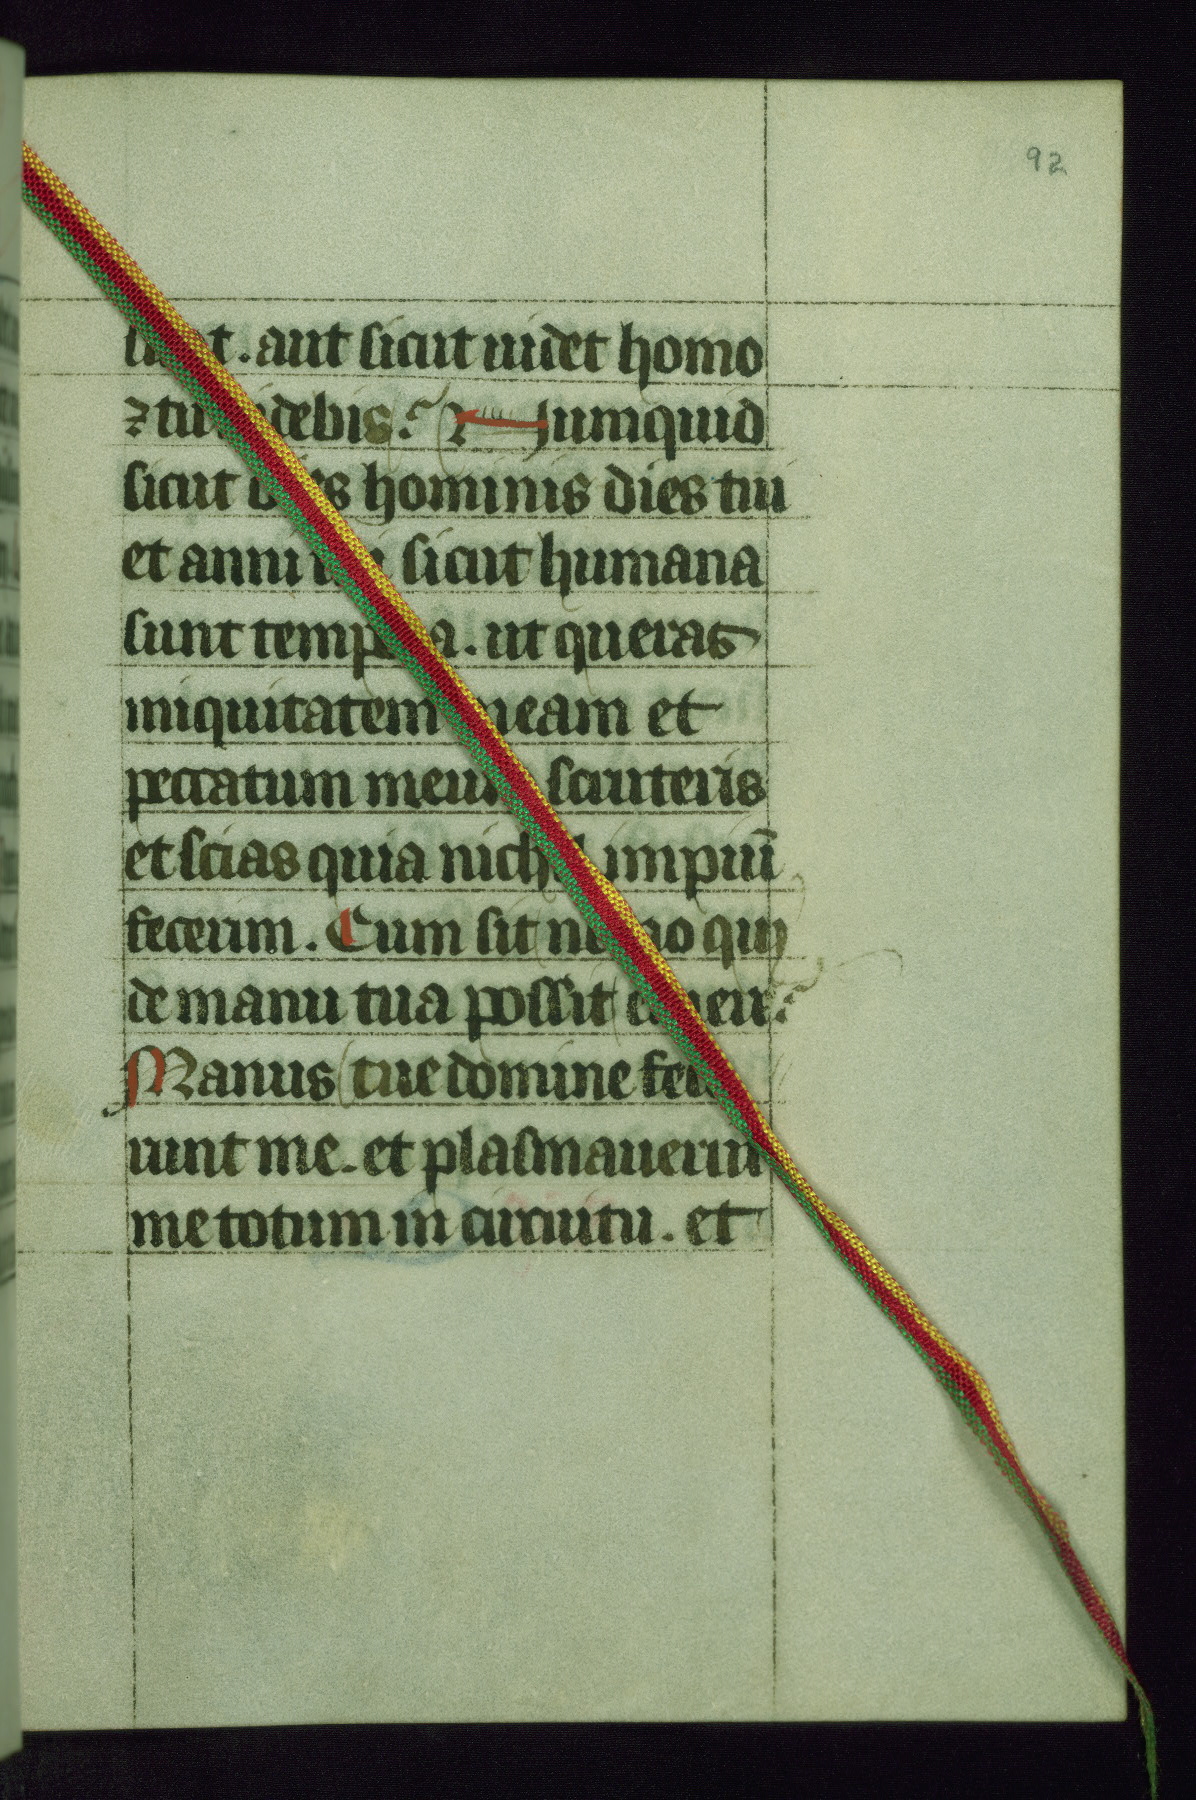 92
sunt. aut sicut uidet homo
⁊ tu uidebis? Numquid
sicut dies hominis dies tui
et anni tui sicut humana
sunt tempora. ut queras
iniquitatem meam et
peccatum meum scruteris
et scias quia nichil impiū
fecerim. Cum sit nemo qui
de manu tua possit eruere?
Manus tue domine fece
runt me. et plasmauerunt
me totum in circuitu. et